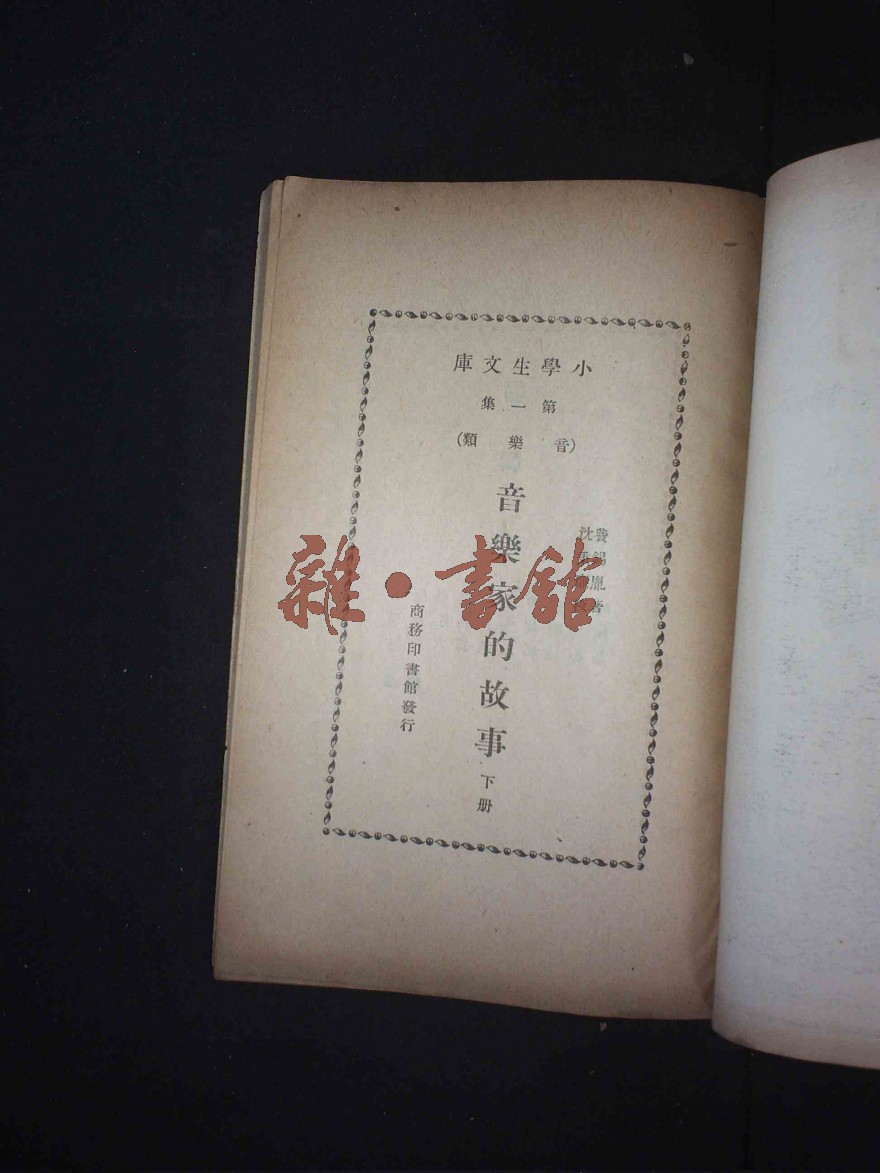 小學生文庫
第一集
(音樂類)
費錫胤著
沈
音樂家的故事 下册
商務印書館發行
雜·書館